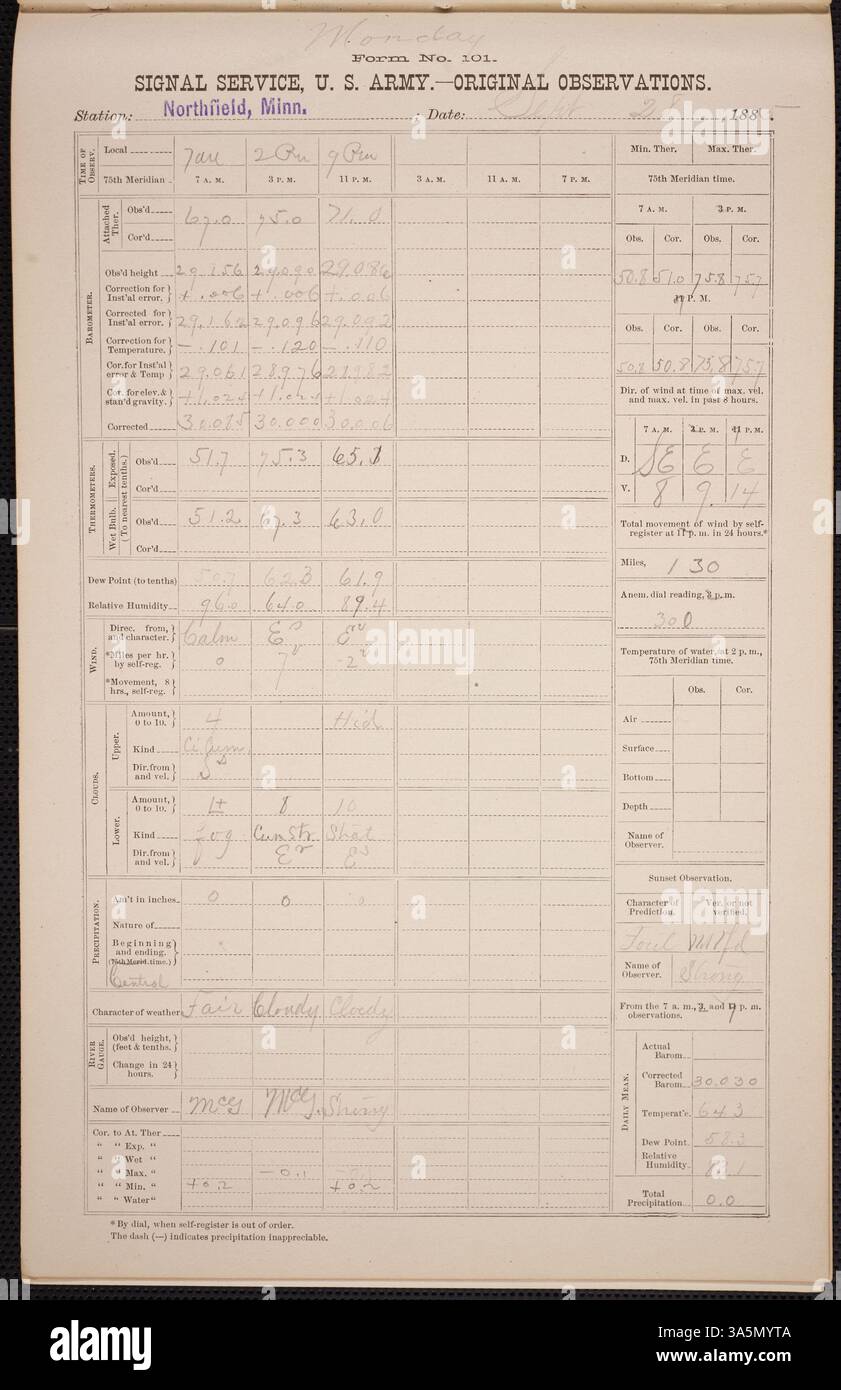 Monday
Form No. 101.
SIGNAL SERVICE, U. S. ARMY.—ORIGINAL OBSERVATIONS.
Station: Northfield, Minn. ; Date: Sept 28, 1885.
TIME OF OBSERV. Local 7am 2 Pm 9 Pm
75th Meridian 7 A. M. 3 P. M. 11 P. M. 3 A. M. 11 A. M. 7 P. M.
BAROMETER.
Attached Ther. Obs'd 67.0 75.0 71.0
Cor'd
Obs'd height 29.156 29.090 29.086
Correction for Inst'al error. +.006 +.006 +.006
Corrected for Inst'al error. 29.162 29.096 29.092
Correction for Temperature. -.101 -.120 -.110
Cor. for Inst'al error & Temp 29.061 28.976 28.982
Cor. for elev. & stan'd gravity. +1.024 +1.024 +1.024
Corrected 30.085 30.000 30.006
THERMOMETERS.
(To nearest tenths.)
Exposed. Obs'd 51.7 75.3 65.1
Cor'd
Wet Bulb. Obs'd 51.2 67.3 63.0
Cor'd
Dew Point (to tenths) 50.7 62.3 61.9
Relative Humidity 96.0 64.0 89.4
WIND.
Direc. from, and character. Calm E E
*Miles per hr. by self-reg. 0 7 2
*Movement, 8 hrs., self-reg.
CLOUDS.
Upper. Amount, 0 to 10. 4 Hid
Kind Ci Cum
Dir. from and vel. S
Lower. Amount, 0 to 10. 1+ 8 10
Kind fog Cum Str. Strat
Dir. from and vel. E E
PRECIPITATION.
Am't in inches 0 0 0
Nature of
Beginning and ending. (75th Merid. time.)
Central
Character of weather Fair Cloudy Cloudy
RIVER GAUGE.
Obs'd height, (feet & tenths.)
Change in 24 hours.
Name of Observer McG McG. Strong
Cor. to At. Ther
" " Exp. "
" " Wet "
" " Max. " -0.1
" " Min. " +0.2 +0.2
" " Water "
* By dial, when self-register is out of order.
The dash (—) indicates precipitation inappreciable.
Min. Ther. Max. Ther.
75th Meridian time.
7 A. M. 3 P. M.
Obs. Cor. Obs. Cor.
50.8 51.0 75.8 75.7
11 P. M.
Obs. Cor. Obs. Cor.
50.8 50.8 75.8 75.7
Dir. of wind at time of max. vel. and max. vel. in past 8 hours.
7 A. M. 3 P. M. 11 P. M.
D. SE E E
V. 8 9 14
Total movement of wind by self-register at 11 p. m. in 24 hours.*
Miles, 130
Anem. dial reading, 3 p. m.
300
Temperature of water, at 2 p. m., 75th Meridian time.
Obs. Cor.
Air
Surface
Bottom
Depth
Name of Observer.
Sunset Observation.
Character of Prediction. Ver. or not verified.
Foul
Name of Observer. Strong
From the 7 a. m., 3, and 11 p. m. observations.
DAILY MEAN.
Actual Barom
Corrected Barom. 30.030
Temperat'e. 64.3
Dew Point. 58.3
Relative Humidity.
Total Precipitation. 0.0
alamy
Image ID: 3A5MYTA
www.alamy.com